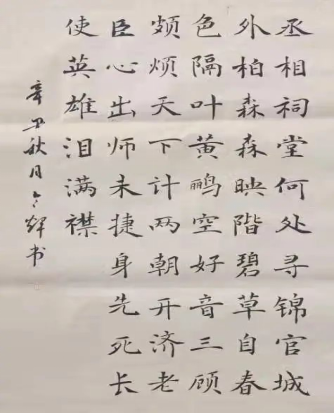 丞相祠堂何处寻锦官城
外柏森森映阶碧草自春
色隔叶黄鹂空好音三顾
频烦天下计两朝开济老
臣心出师未捷身先死长
使英雄泪满襟
辛丑秋月辉书